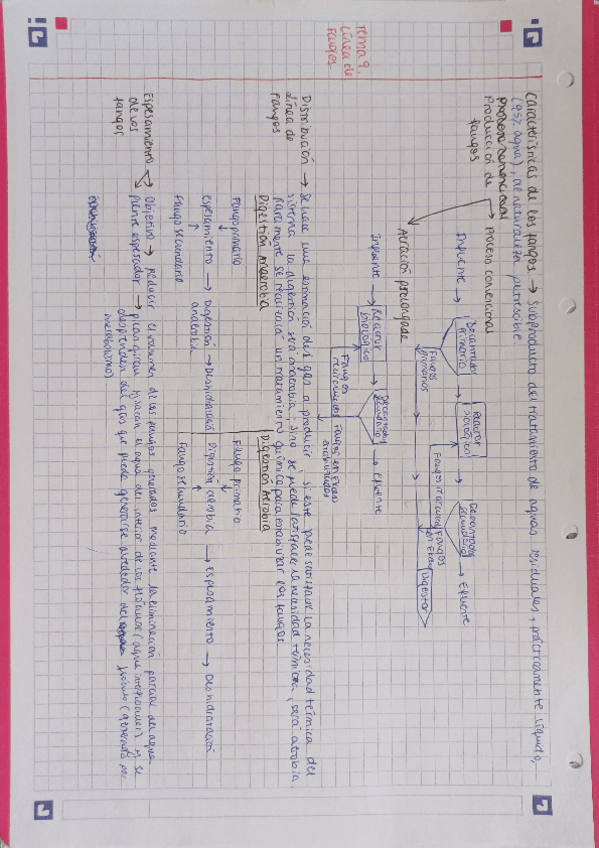 Tema 9.
Línea de
fangos.
Características de los fangos → Subproducto del tratamiento de aguas residuales, prácticamente líquido,
(95% agua), de naturaleza putrescible.
Producción de
fangos
→ Proceso convencional
Influente → Decantador primario → Reactor biológico → Decantador secundario → Efluente
Fangos primarios
Fangos recircu
Fangos en exceso
Digestor
Aeración prolongada
Influente → Reactor biológico → Decantador secundario → Efluente
Fangos recirculados
Fangos en exceso
Distribución → Se hace una estimación del gas a producir, si este puede satisfacer la necesidad térmica del
línea de sistema la digestión será anaerobia, sino se puede satisfacer la necesidad térmica, será aerobia.
fangos Raramente se realizará un tratamiento químico para estabilizar los fangos.
Digestión Anaerobia
Fango primario
↓
espesamiento → Digestión anaerobia → Deshidratación
Fango secundario
Digestión Aerobia
Fango primario
↓
Digestión aerobia → espesamiento → Deshidratación
↑
Fango secundario
Espesamiento → Objetivo → reducir el volumen de los fangos generados mediante la eliminación parcial del agua
de los → puente espesador → picas giran y sacan el agua del interior de los flóculos (agua interflocular) y se
fangos desprenden del gas que puede generarse alrededor del flóculo (generado por
metabolismo)